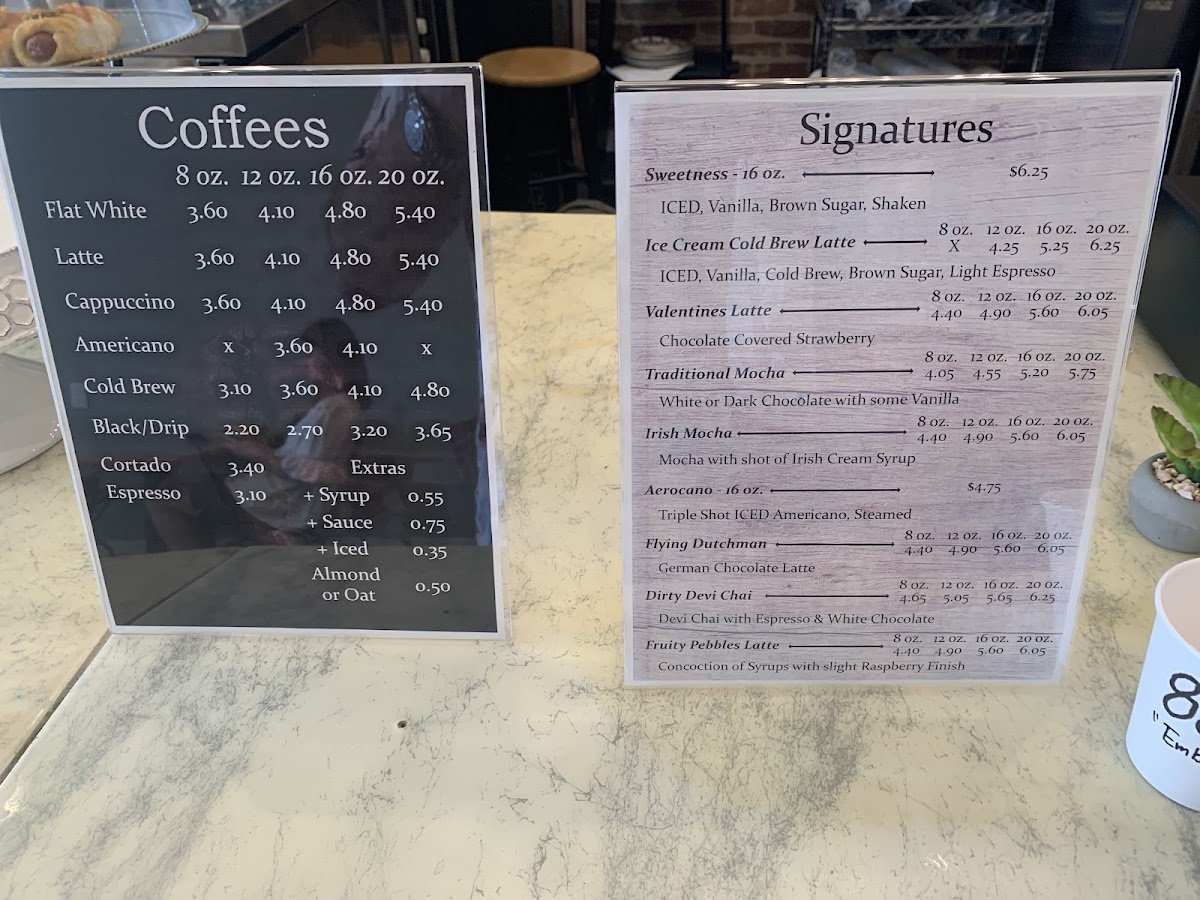 Coffees
8 oz. 12 oz. 16 oz. 20 oz.
Flat White 3.60 4.10 4.80 5.40
Latte 3.60 4.10 4.80 5.40
Cappuccino 3.60 4.10 4.80 5.40
Americano x 3.60 4.10 x
Cold Brew 3.10 3.60 4.10 4.80
Black/Drip 2.20 2.70 3.20 3.65
Cortado 3.40 Extras
Espresso 3.10 + Syrup 0.55
+ Sauce 0.75
+ Iced 0.35
Almond
or Oat 0.50
Signatures
Sweetness - 16 oz. $6.25
ICED, Vanilla, Brown Sugar, Shaken
8 oz. 12 oz. 16 oz. 20 oz.
Ice Cream Cold Brew Latte X 4.25 5.25 6.25
ICED, Vanilla, Cold Brew, Brown Sugar, Light Espresso
8 oz. 12 oz. 16 oz. 20 oz.
Valentines Latte 4.40 4.90 5.60 6.05
Chocolate Covered Strawberry
8 oz. 12 oz. 16 oz. 20 oz.
Traditional Mocha 4.05 4.55 5.20 5.75
White or Dark Chocolate with some Vanilla
8 oz. 12 oz. 16 oz. 20 oz.
Irish Mocha 4.40 4.90 5.60 6.05
Mocha with shot of Irish Cream Syrup
Aerocano - 16 oz. $4.75
Triple Shot ICED Americano, Steamed
8 oz. 12 oz. 16 oz. 20 oz.
Flying Dutchman 4.40 4.90 5.60 6.05
German Chocolate Latte
8 oz. 12 oz. 16 oz. 20 oz.
Dirty Devi Chai 4.65 5.05 5.65 6.25
Devi Chai with Espresso & White Chocolate
8 oz. 12 oz. 16 oz. 20 oz.
Fruity Pebbles Latte 4.40 4.90 5.60 6.05
Concoction of Syrups with slight Raspberry Finish